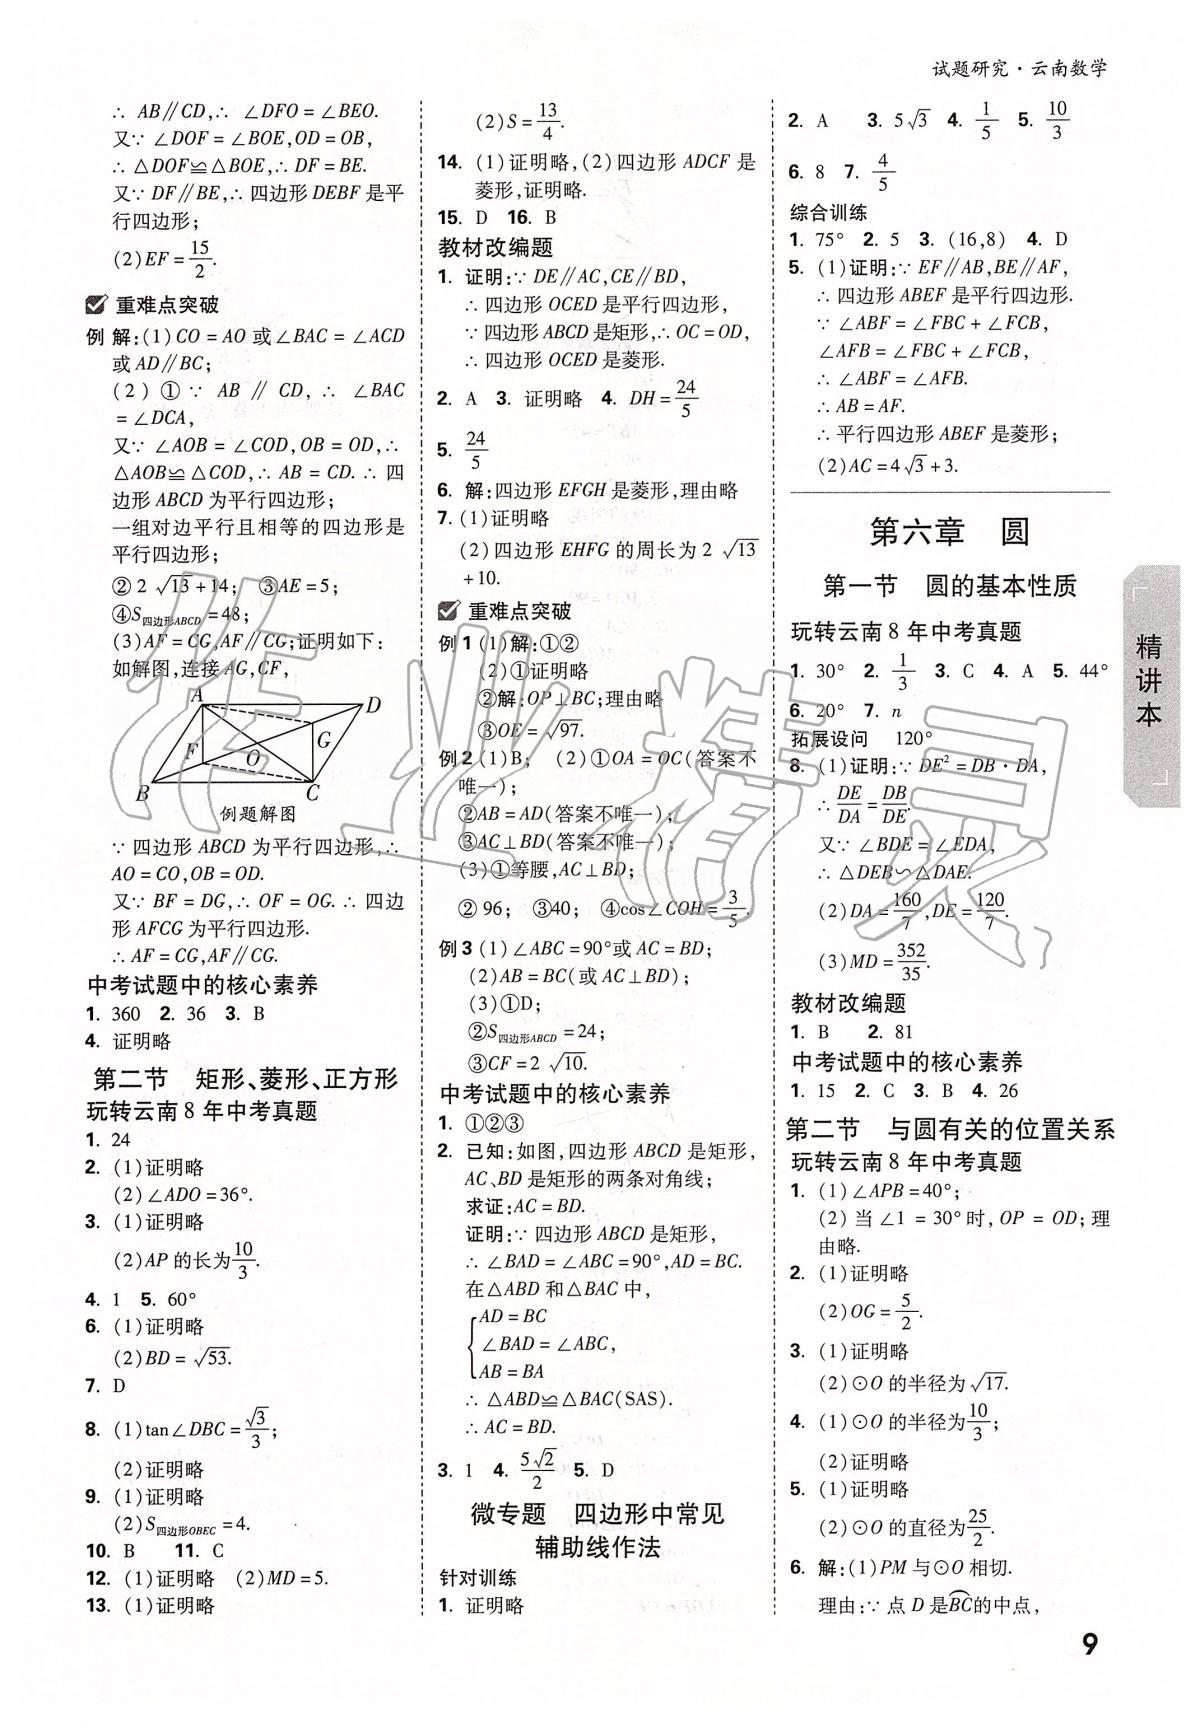 试题研究·云南数学
∴ AB∥CD,∴ ∠DFO=∠BEO.
又∵ ∠DOF=∠BOE,OD=OB,
∴ △DOF≌△BOE,∴ DF=BE.
又∵ DF∥BE,∴ 四边形DEBF是平
行四边形;
(2)EF=15/2.
重难点突破
例 解:(1)CO=AO或∠BAC=∠ACD
或AD∥BC;
(2)①∵ AB∥CD,∴ ∠BAC
=∠DCA,
又∵ ∠AOB=∠COD,OB=OD,∴
△AOB≌△COD,∴ AB=CD.∴ 四
边形ABCD为平行四边形;
一组对边平行且相等的四边形是
平行四边形;
②2√13+14; ③AE=5;
④S四边形ABCD=48;
(3)AF=CG,AF∥CG;证明如下:
如解图,连接AG,CF,
A D
F O G
B C
例题解图
∵ 四边形ABCD为平行四边形,∴
AO=CO,OB=OD.
又∵ BF=DG,∴ OF=OG.∴ 四边
形AFCG为平行四边形.
∴ AF=CG,AF∥CG.
中考试题中的核心素养
1. 360 2. 36 3. B
4. 证明略
第二节 矩形、菱形、正方形
玩转云南8年中考真题
1. 24
2. (1)证明略
(2)∠ADO=36°.
3. (1)证明略
(2)AP的长为10/3.
4. 1 5. 60°
6. (1)证明略
(2)BD=√53.
7. D
8. (1)tan∠DBC=√3/3;
(2)证明略
9. (1)证明略
(2)S四边形OBEC=4.
10. B 11. C
12. (1)证明略 (2)MD=5.
13. (1)证明略
(2)S=13/4.
14. (1)证明略,(2)四边形ADCF是
菱形,证明略.
15. D 16. B
教材改编题
1. 证明:∵ DE∥AC,CE∥BD,
∴ 四边形OCED是平行四边形,
∵ 四边形ABCD是矩形,∴ OC=OD,
∴ 四边形OCED是菱形.
2. A 3. 证明略 4. DH=24/5
5. 24/5
6. 解:四边形EFGH是菱形,理由略
7. (1)证明略
(2)四边形EHFG的周长为2√13
+10.
重难点突破
例1 (1)解:①②
(2)①证明略
②解:OP⊥BC;理由略
③OE=√97.
例2 (1)B; (2)①OA=OC(答案不
唯一);
②AB=AD(答案不唯一);
③AC⊥BD(答案不唯一);
(3)①等腰,AC⊥BD;
②96; ③40; ④cos∠COH=3/5.
例3 (1)∠ABC=90°或AC=BD;
(2)AB=BC(或AC⊥BD);
(3)①D;
②S四边形ABCD=24;
③CF=2√10.
中考试题中的核心素养
1. ①②③
2. 已知:如图,四边形ABCD是矩形,
AC、BD是矩形的两条对角线;
求证:AC=BD.
证明:∵ 四边形ABCD是矩形,
∴ ∠BAD=∠ABC=90°,AD=BC.
在△ABD和△BAC中,
AD=BC
∠BAD=∠ABC,
AB=BA
∴ △ABD≌△BAC(SAS).
∴ AC=BD.
3. 1 4. 5√2/2 5. D
微专题 四边形中常见
辅助线作法
针对训练
1. 证明略
2. A 3. 5√3 4. 1/5 5. 10/3
6. 8 7. 4/5
综合训练
1. 75° 2. 5 3. (16,8) 4. D
5. (1)证明:∵ EF∥AB,BE∥AF,
∴ 四边形ABEF是平行四边形.
∵ ∠ABF=∠FBC+∠FCB,
∠AFB=∠FBC+∠FCB,
∴ ∠ABF=∠AFB.
∴ AB=AF.
∴ 平行四边形ABEF是菱形;
(2)AC=4√3+3.
第六章 圆
第一节 圆的基本性质
玩转云南8年中考真题
1. 30° 2. 1/3 3. C 4. A 5. 44°
6. 20° 7. n
拓展设问 120°
8. (1)证明:∵ DE²=DB·DA,
∴ DE/DA=DB/DE.
又∵ ∠BDE=∠EDA,
∴ △DEB∽△DAE.
(2)DA=160/7,DE=120/7.
(3)MD=352/35.
教材改编题
1. B 2. 81
中考试题中的核心素养
1. 15 2. C 3. B 4. 26
第二节 与圆有关的位置关系
玩转云南8年中考真题
1. (1)∠APB=40°;
(2)当∠1=30°时,OP=OD;理
由略.
2. (1)证明略
(2)OG=5/2.
3. (1)证明略
(2)⊙O的半径为√17.
4. (1)⊙O的半径为10/3;
(2)证明略
5. (1)证明略
(2)⊙O的直径为25/2.
6. 解:(1)PM与⊙O相切.
理由:∵ 点D是BC的中点,
精讲本
9
作业精灵